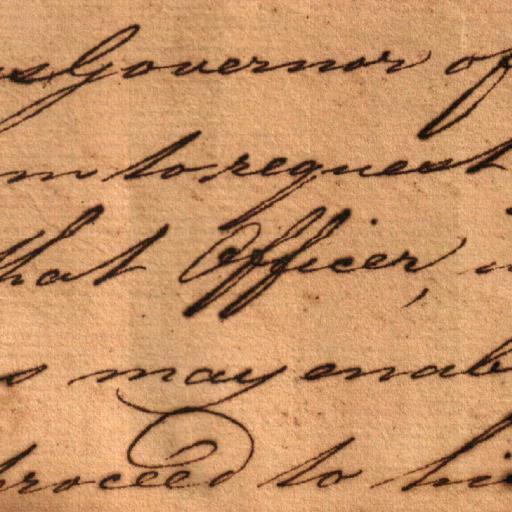 as Governor of
m to request
that Officer,
s may enab
proceed to his